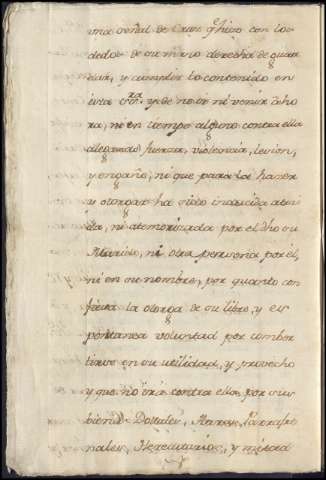 una señal de Cruz q̃ hizo con los
dedos de su mano derecha de guar
dar, y cumplir lo contenido en
esta esrra. y de no ir ni venir aho
ra, ni en tiempo alguno contra ella
alegando fuerza, violencia, lesion,
y engaño, ni que para la hacer
y otorgar ha sido inducida atrai
da, ni atemorizada por el dho su
Marido, ni otra persona por él,
ni en su nombre, por quanto con
fiesa la otorga de su libre, y es
pontanea voluntad por comber
tirse en su utilidad, y provecho
y que no irá contra ella por sus
bienes Dotales, Arras, Parrafre
nales, Hereditarios, y mitad